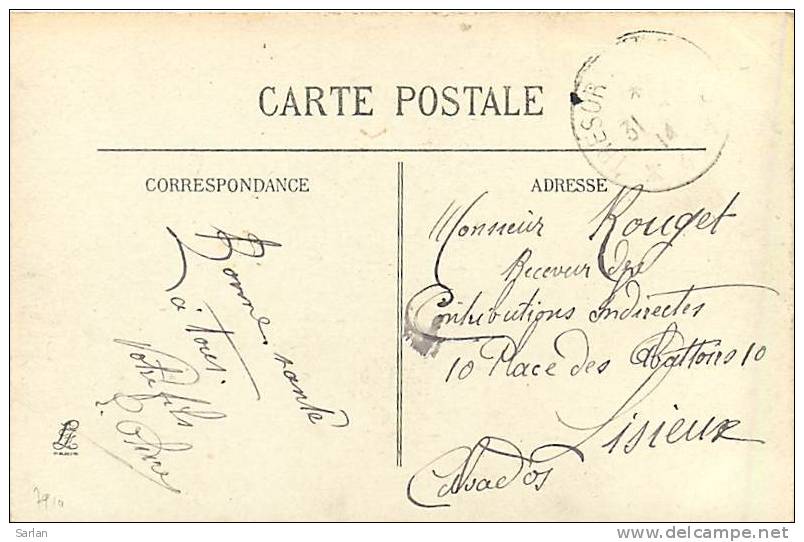 CARTE POSTALE
TRESOR
31
14
CORRESPONDANCE
ADRESSE
Bonne santé
à tous.
Votre fils
Monsieur Rouget
Receveur des
Contributions Indirectes
10 Place des Abattoirs 10
Lisieux
Calvados
PARIS
Sarlan
delcampe.net